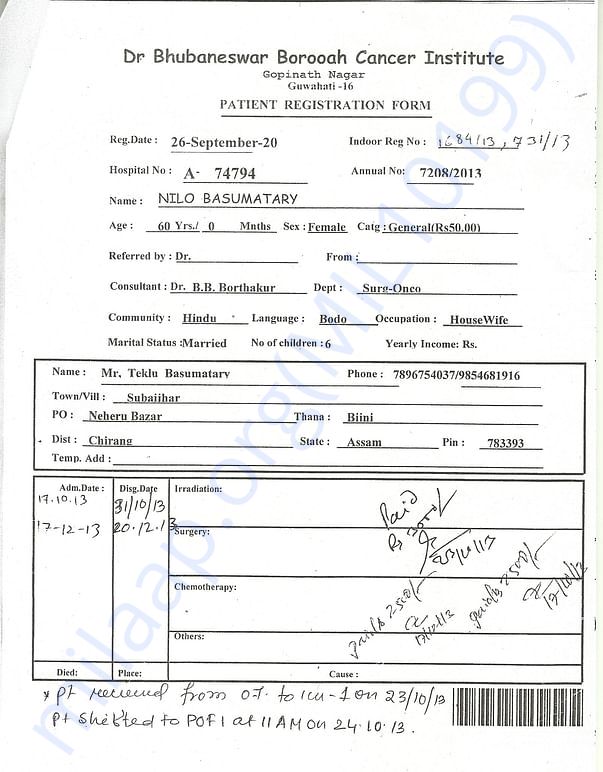 Dr Bhubaneswar Borooah Cancer Institute
Gopinath Nagar
Guwahati -16
PATIENT REGISTRATION FORM
Reg.Date : 26-September-20 Indoor Reg No : 1684/13, 731/13
Hospital No : A- 74794 Annual No: 7208/2013
Name : NILO BASUMATARY
Age : 60 Yrs./ 0 Mnths Sex : Female Catg : General(Rs50.00)
Referred by : Dr. From :
Consultant : Dr. B.B. Borthakur Dept : Surg-Onco
Community : Hindu Language : Bodo Occupation : HouseWife
Marital Status :Married No of children :6 Yearly Income: Rs.
Name : Mr. Teklu Basumatary Phone : 7896754037/9854681916
Town/Vill : Subaijhar
PO : Neheru Bazar Thana : Bijni
Dist : Chirang State : Assam Pin : 783393
Temp. Add :
Adm.Date : Disg.Date Irradiation:
17.10.13 31/10/13
17-12-13 20.12.13
Paid
23/10/13
Surgery:
Chemotherapy:
paid 2500/-
17/10/13
paid 2500/-
Others:
Died: Place: Cause :
* pt received from O.T. to ICU-1 on 23/10/13
Pt shifted to POF1 at 11 AM on 24.10.13.
milaap.org(MIL10199)